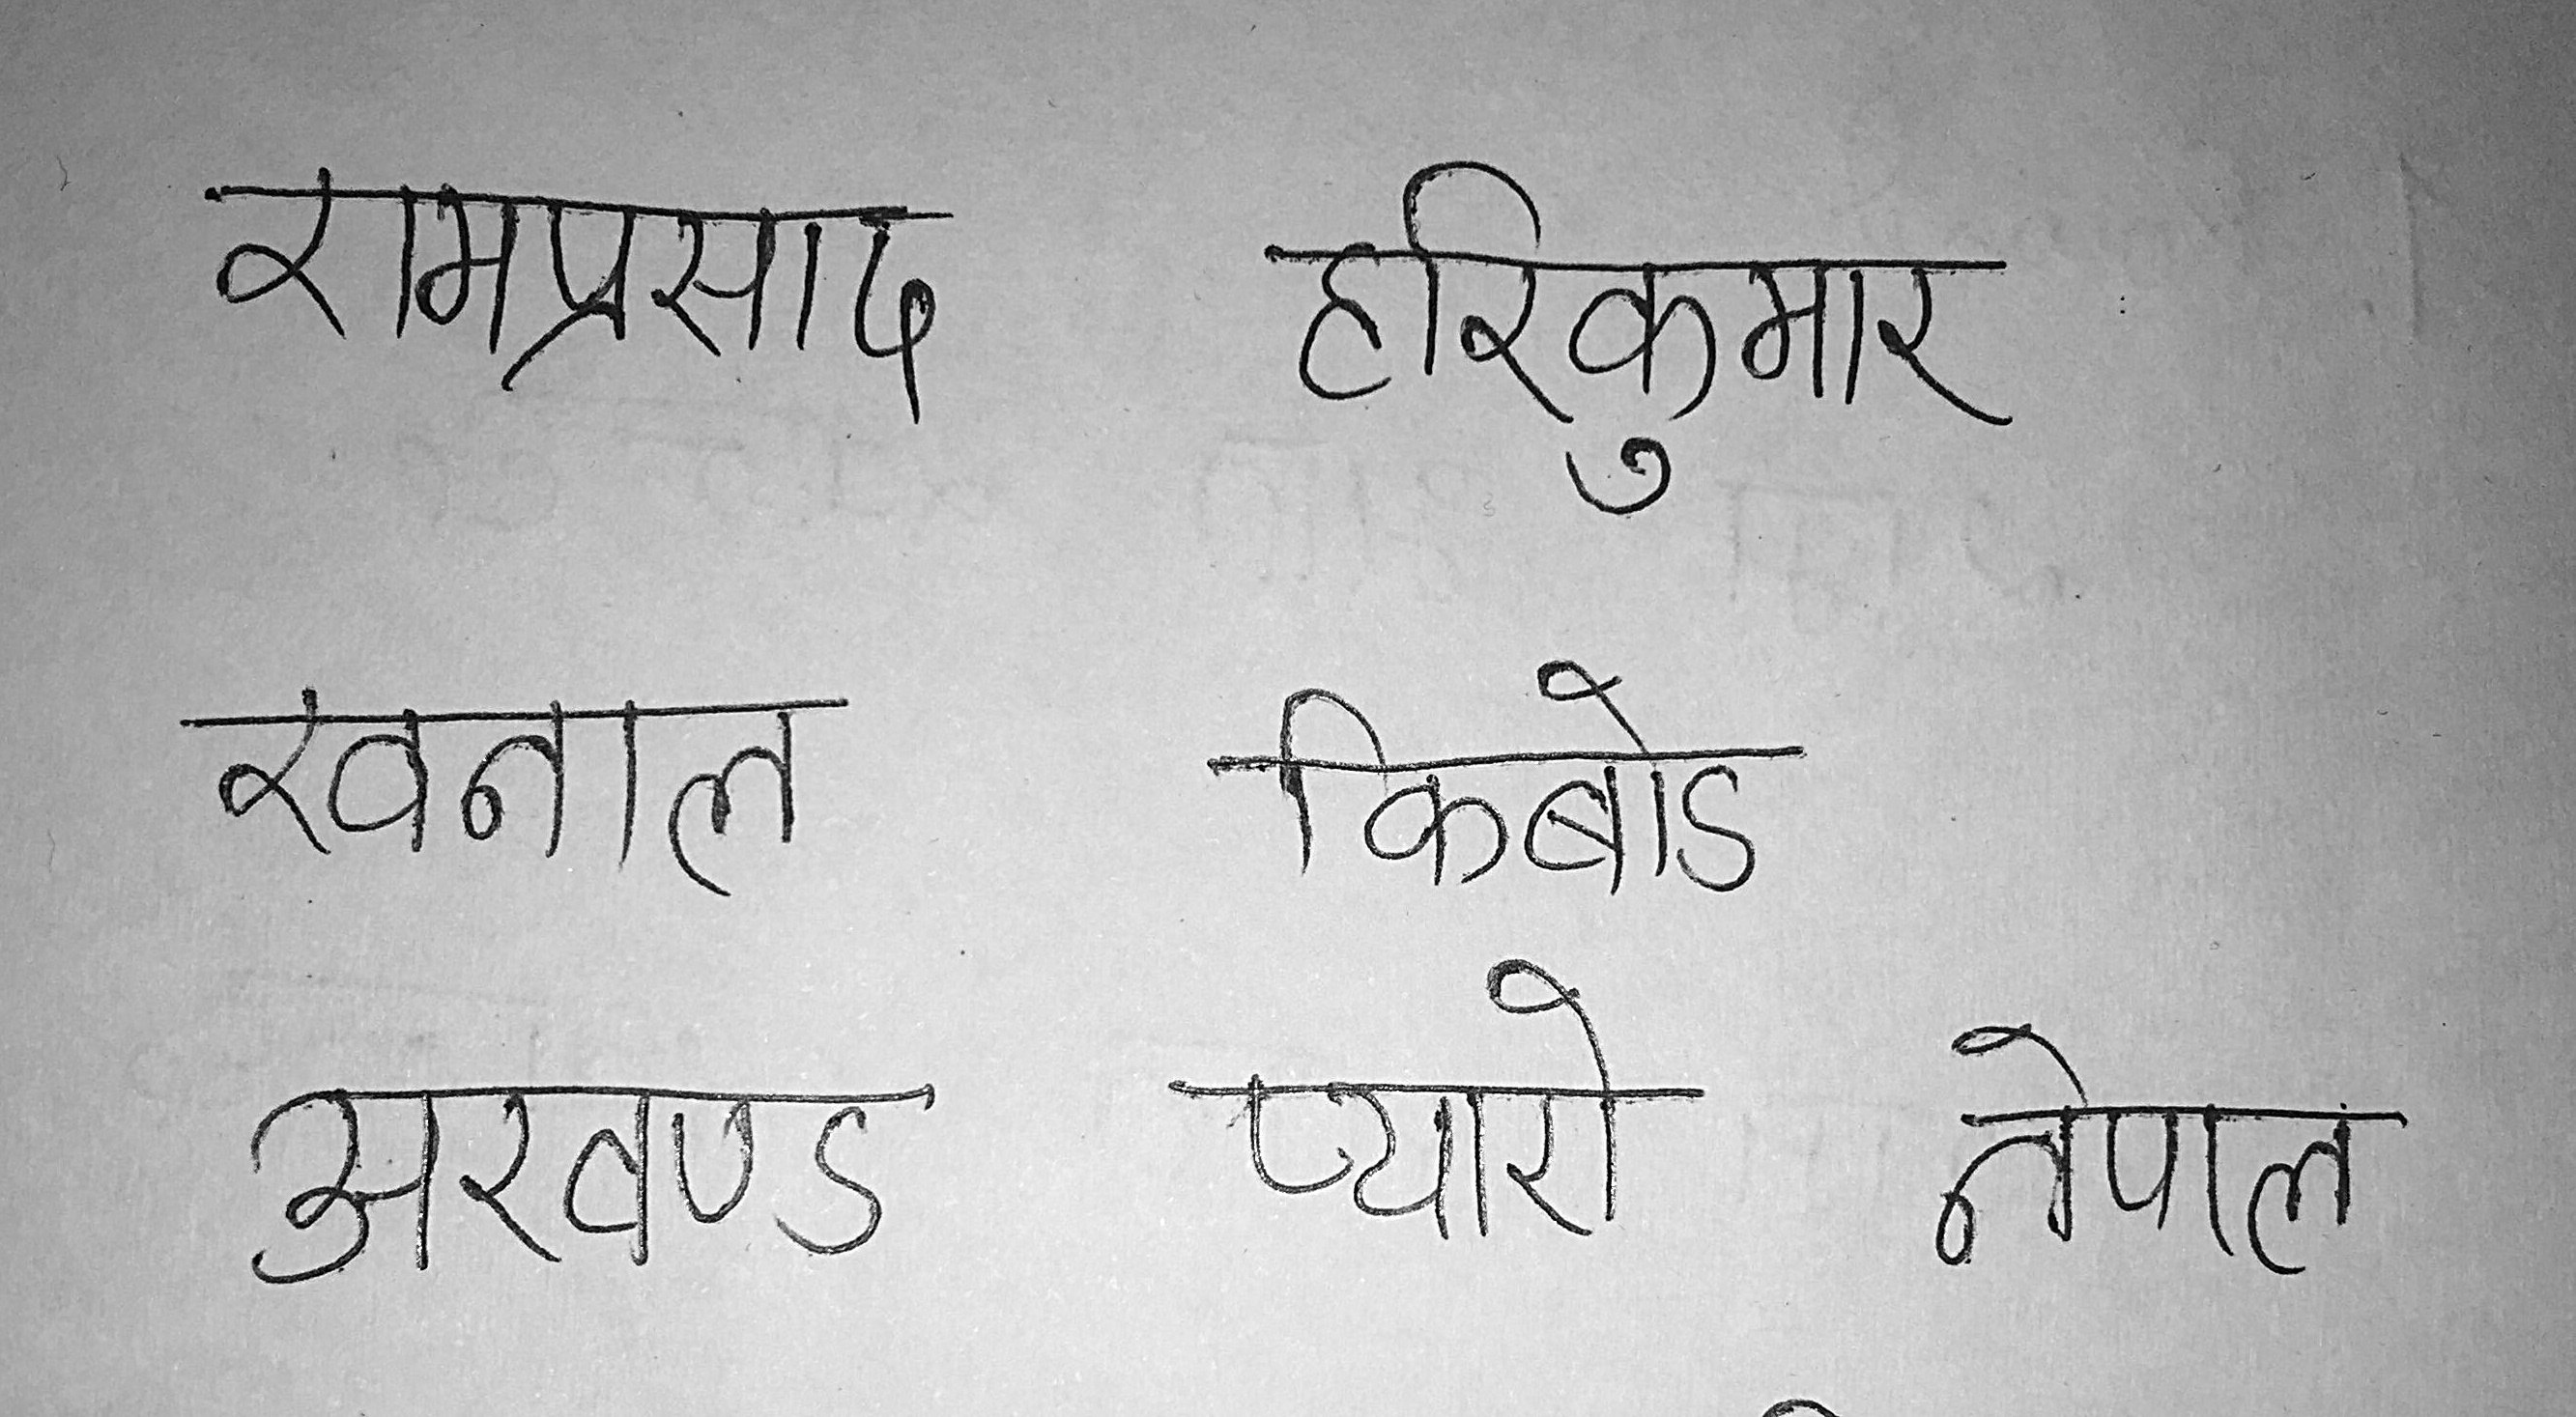 रामप्रसाद हरिकुमार
खनाल किबोड
अखण्ड प्यारो नेपाल